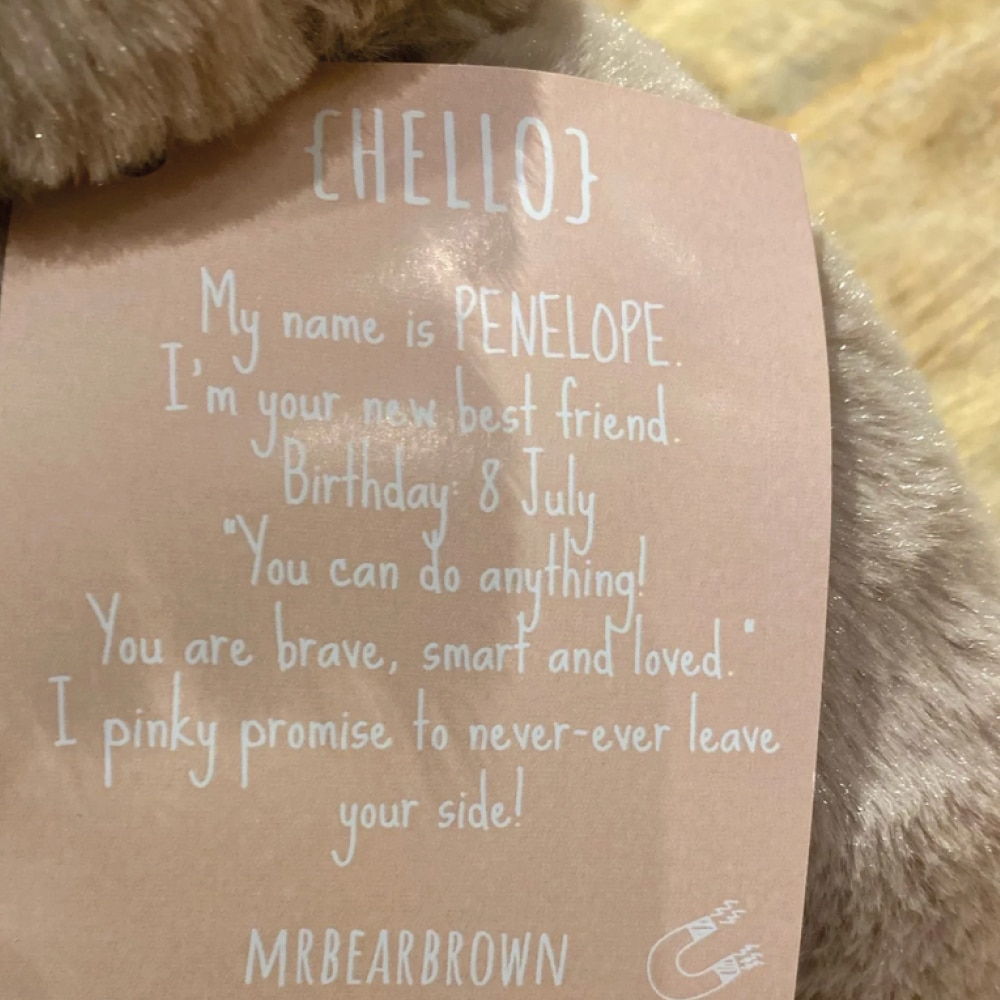 {HELLO}
My name is PENELOPE.
I'm your new best friend.
Birthday: 8 July
"You can do anything!
You are brave, smart and loved."
I pinky promise to never-ever leave
your side!
MRBEARBROWN